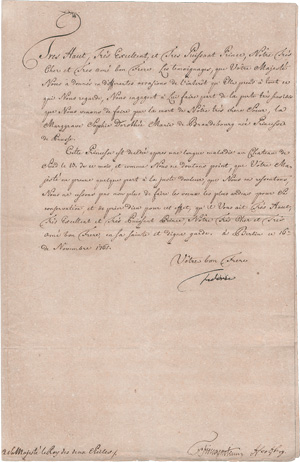 Tres Haut, Très Excellent, et Très Puissant Prince, Notre Très
Cher et Très amé bon Frere. Les temoignages, que Votre Majesté
Nous a donnés en differentes occasions de l'interêt qu'Elle prend à tout ce
qui Nous regarde, Nous engagent à Lui faire part de la perte très
que Nous venons de faire par la mort de Notre très chere Soeur, la
Marggrave Sophie Dorothée Marie de Brandebourg née Princesse
de Prusse.
Cette Princesse est decedée après une longue maladie au Chateau de
le de ce mois et comme Nous ne doutons point que Votre Ma-
jesté ne prenne quelque part à la juste douleur que Nous en ressentons,
Nous ne
conservation et de prier Dieu pour cet effet, qu'il Vous ait Très Haut,
Très Excellent et Très Puissant Prince Notre Très Cher et Très
amé bon Frere, en sa sainte et digne garde. à Berlin ce 16e
de Novembre 1765.
Votre bon Frere
Federic
à Sa Majesté le Roy des deux Siciles